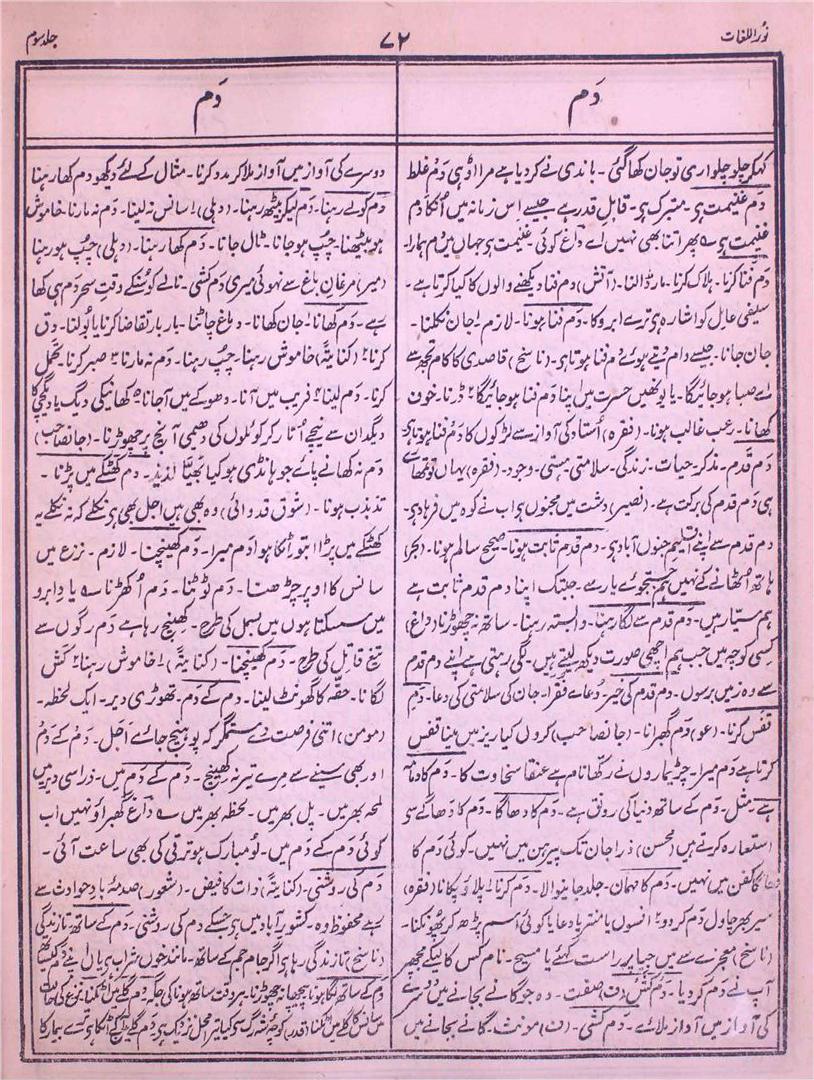 نُوراللغات
۷۲
جلد سوم
دَم
دَم
کہکر چلو چلو اری تو جان کھا گئی - باندی نے کر دیا ہے مرا اوڑی دَم غلط
دَم غنیمت ہی - متبرک ہی - قابل قدر ہے جیسے اس زمانہ میں اُنکا دَم
غنیمت ہی ؎ پھر اتنا بھی نہیں اے داغ کوئی - غنیمت ہی جہاں میں دم ہمارا -
دَم فنا کرنا - ہلاک کرنا - مار ڈالنا - (آتش) دم فنا دیکھنے والوں کا کیا کرتا ہے -
سیفی عامل کو اشارہ ہی ترے ابرو کا - دَم فنا ہونا - لازم - ۱ جان نکلنا -
جان جانا - جیسے دام دیتے ہوئے دَم فنا ہوتا ہی - (ناسخ) قاصدی کا کام تجھ سے
اے صبا ہو جائیگا - یا یونہیں حسرت میں اپنا دم فنا ہو جائیگا ۲ ڈرنا - خوف
کھانا - رعب غالب ہونا - (فقرہ) اُستاد کی آواز سے لڑکوں کا دَم فنا ہوتا ہی
دَم قدم - مذکر - حیات - زندگی - سلامتی - ہستی - وجود - (فقرہ) یہاں تو تمہارے
ہی دَم قدم کی برکت ہے - (نصیر) دشت میں مجنوں ہو اب نے کوہ میں فرہاد ہی -
دم قدم سے اپنے اقلیم جنوں آباد ہی - دَم قدم ثابت ہونا - صحیح سالم ہونا - (بحر)
ہاتھ اُٹھانے کے نہیں ہم جستجوئے یار سے - جبتک اپنا دم قدم ثابت ہے
ہم سیار ہیں - دَم قدم سے لگا رہنا - وابستہ رہنا - ساتھ نہ چھوڑنا (داغ)
کسی کوچہ میں جب ہم اچھی صورت دیکھ لیتے ہیں - لگی رہتی ہے اپنے دم قدم
سے وہ زمیں برسوں - دَم قدم کی خیر - دُعاے فقرا - جان کی سلامتی کی دعا - دَم
قفس کرنا - (عو) دَم گھبرانا - (جانصاحب) کرول کیا ریز میں مینا قفس
کرتا ہے دَم میرا - چڑیماروں نے رکھا نام ہے عنقا سخاوت کا - دَم کا دمامہ
ہے - مثل - دَم کے ساتھ دنیا کی رونق ہے - دَم کا دھاگا - دَم کا دھاگے سے
استعارہ کرتے ہیں (محسن) ذرا جان تک پیرہن میں نہیں - کوئی دَم کا
دھاگا کفن میں نہیں - دَم کا مہمان - جلد جانیوالا - دَم کرنا ۱ پلاؤ پکانا (فقرہ)
سیر بھر چاول دَم کر دو ۲ انسوں یا منتر یا دعا یا کوئی اسم پڑھ کر پھونکنا -
(ناسخ) معجزے سے میں جیا ہر راست کہئے یا مسیح - نام کس کا لیکے مجھ پر
آپ نے دَم کر دیا - دَم کش (ف) صفت - وہ جو گانے بجانے میں دوسرے
کی آواز میں آواز ملائے - دَم کشی - (ف) مونث - گانے بجانے میں
دوسرے کی آواز میں آواز ملا کر مدد کرنا - مثال کے لئے دیکھو دم کھا رہنا
دَم کو لے رہنا - دَم لیکر بیٹھ رہنا - (دہلی) ۱ سانس نہ لینا - دَم نہ مارنا - خاموش
ہو بیٹھنا - چپ ہو جانا - ٹال جانا - دَم کھا رہنا - (دہلی) چپ ہو رہنا
(میر) مرغان باغ سے نہوئی میری دَم کشی - نالے کو سُنکے وقت سحر دَم ہی کھا
رہے - دَم کھانا ۱ جان کھانا - دماغ چاٹنا - بار بار تقاضا کرنا یا بولنا - دِق
کرنا ۲ (کنایۃً) خاموش رہنا - چپ رہنا - دَم نہ مارنا ۳ صبر کرنا - تحمل
کرنا - دَم لینا ۴ فریب میں آنا - دھوکے میں آجانا ۵ کھانیکی دیگ یا دیگچی کا
دیگدان سے نیچے اُتار کر کوئلوں کی دھیمی آنچ پر چھوڑنا - (جانصاحب)
دَم نہ کھانے پائے جو ہانڈی ہو کیا بھپتا لذیذ - دم کھٹکے میں پڑنا -
تذبذب ہونا - (شوق قدوائی) وہ بھی ہیں اجل بھی ہی نکلے کہ نہ نکلے یہ
کھٹکے میں پڑا ابتو اٹکا ہوا دَم میرا - دَم کھینچنا - لازم - نزع میں
سانس کا اوپر چڑھنا - دَم ٹوٹنا - دَم اُکھڑنا ؎ یاد ابرو
میں سسکتا ہوں میں بسمل کی طرح - کھینچ رہا ہے دَم رگوں سے
تیغ قاتل کی طرح - دَم کھینچنا - (کنایۃً) ۱ خاموش رہنا ۲ کش
لگانا - حقّہ کا گھونٹ لینا - دَم کے دَم - تھوڑی دیر - ایک لحظہ -
(مومن) اتنی فرصت دے ستمگر کہ پہونچ جائے اجل - دَم کے دَم
اور بھی سینے سے مرے تیر نہ کھینچ - دَم کے دَم میں - ذرا سی دیر میں
لمحہ بھر میں - پل بھر میں - لحظہ بھر میں ؎ داغ گھبراؤ نہیں اب
کوئی دَم کے دَم میں - لو مبارک ہو ترقی کی بھی ساعت آئی -
دَم کی روشنی - (کنایۃً) ذات کا فیض - (شعور) صدمۂ باد حوادث سے
رہے محفوظ وہ - کشور آباد میں ہی جسکے دم کی روشنی - دَم کے ساتھ - تا زندگی
(ناسخ) تا زندگی رہا ہی اگر جام جم کے ساتھ - مانند خوں شراب ہی یاں اپنے دَم کیساتھ
دَم کے ساتھ لگا ہونا - پیچھا نہ چھوڑنا - ہر وقت ساتھ ہونا کی جگہ - دَم گلے میں اٹکنا - نزع کی حالت
میں سانس گلے میں اٹکنا (قدر)